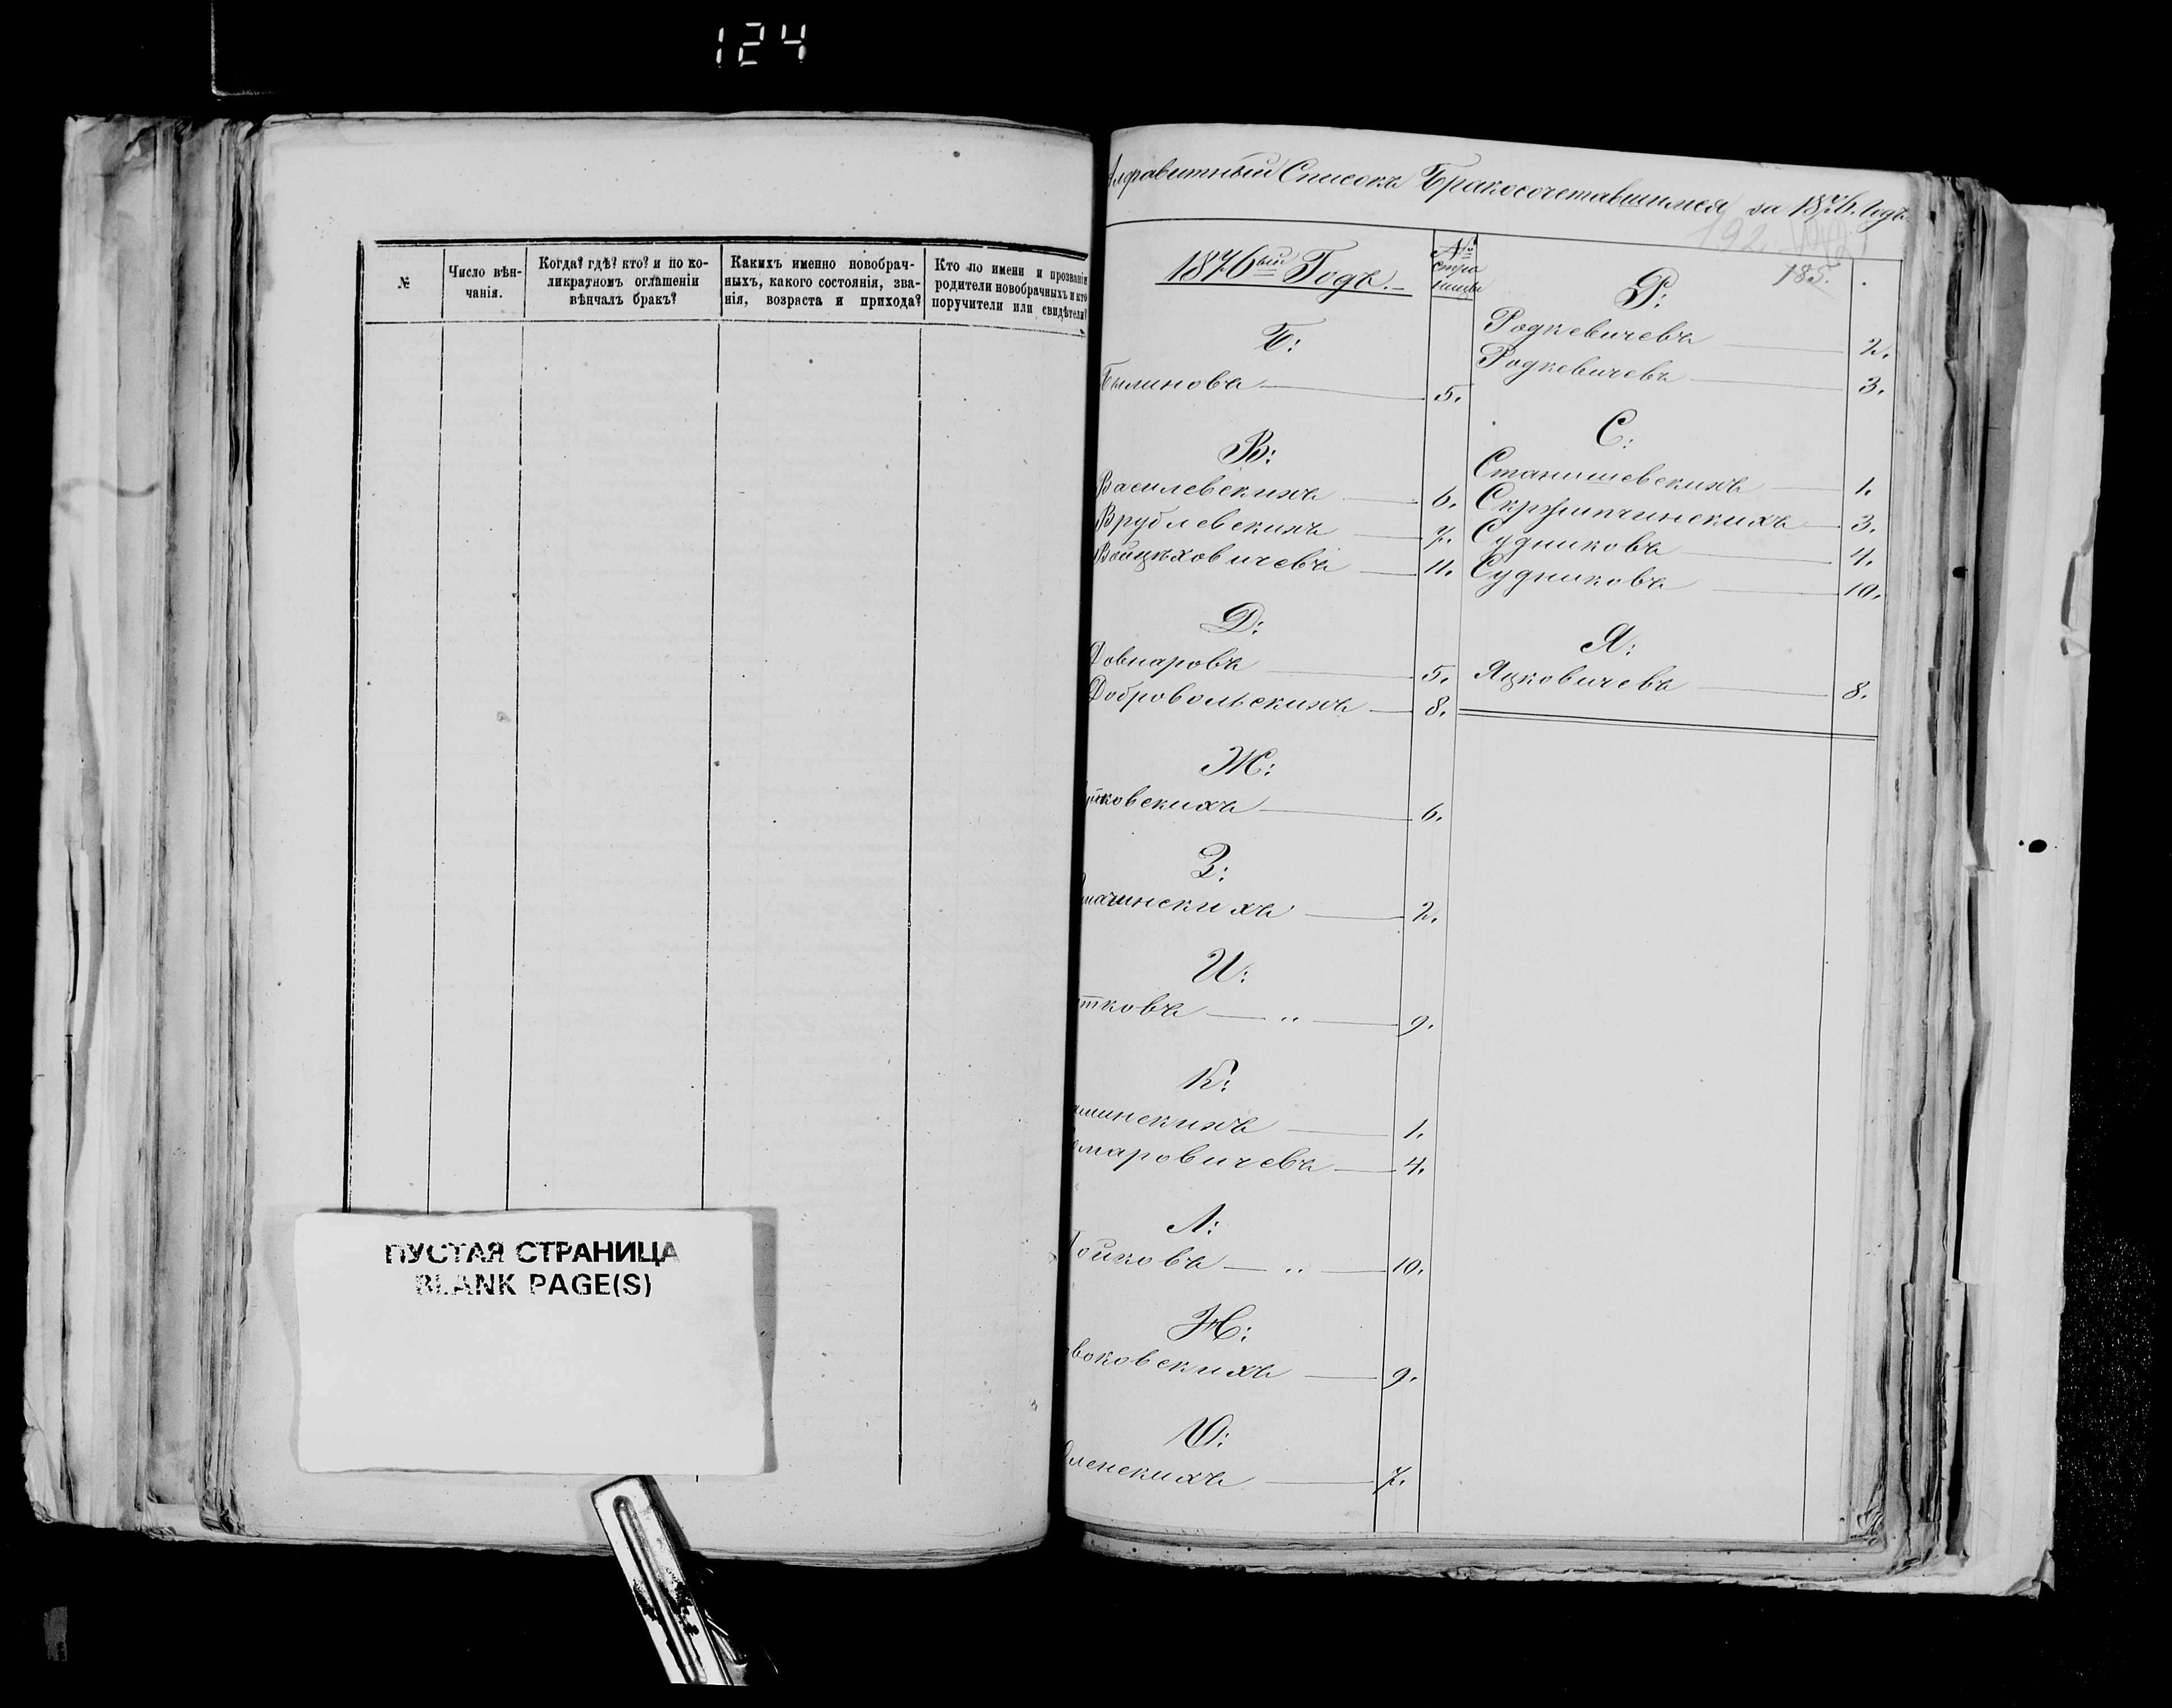 124
№
Число вѣн-
чанія.
Когда? гдѣ? кто? и по ко-
ликратномъ оглашеніи
вѣнчалъ бракъ?
Какихъ именно новобрач-
ныхъ, какого состоянія, зва-
нія, возраста и прихода?
Кто по имени и прозванію
родители новобрачныхъ и кто
поручители или свидѣтели?
ПУСТАЯ СТРАНИЦА
BLANK PAGE(S)
Алфавитный Списокъ Бракосочетавшимся за 1876. Годъ.
192
185.
1876ый Годъ.
№
стра
ницы
Б:
Былинова 5.
В:
Василевскихъ 6.
Врублевскихъ 7.
Войцѣховичевъ 11.
Д:
Довнаровъ 5.
Добровольскихъ 8.
Ж:
ковскихъ 6.
З:
мачинскихъ 2.
И:
тковъ — „ — 9.
К:
минскихъ 1.
маровичевъ 4.
Л:
ойковъ — „ — 10.
Н:
воковскихъ 9.
О:
ленскихъ 7.
Р:
Родкевичевъ 2.
Родкевичевъ 3.
С:
Станишевскихъ 1.
Скржипчинскихъ 3.
Судниковъ 4.
Судниковъ 10.
Я:
Яцковичевъ 8.